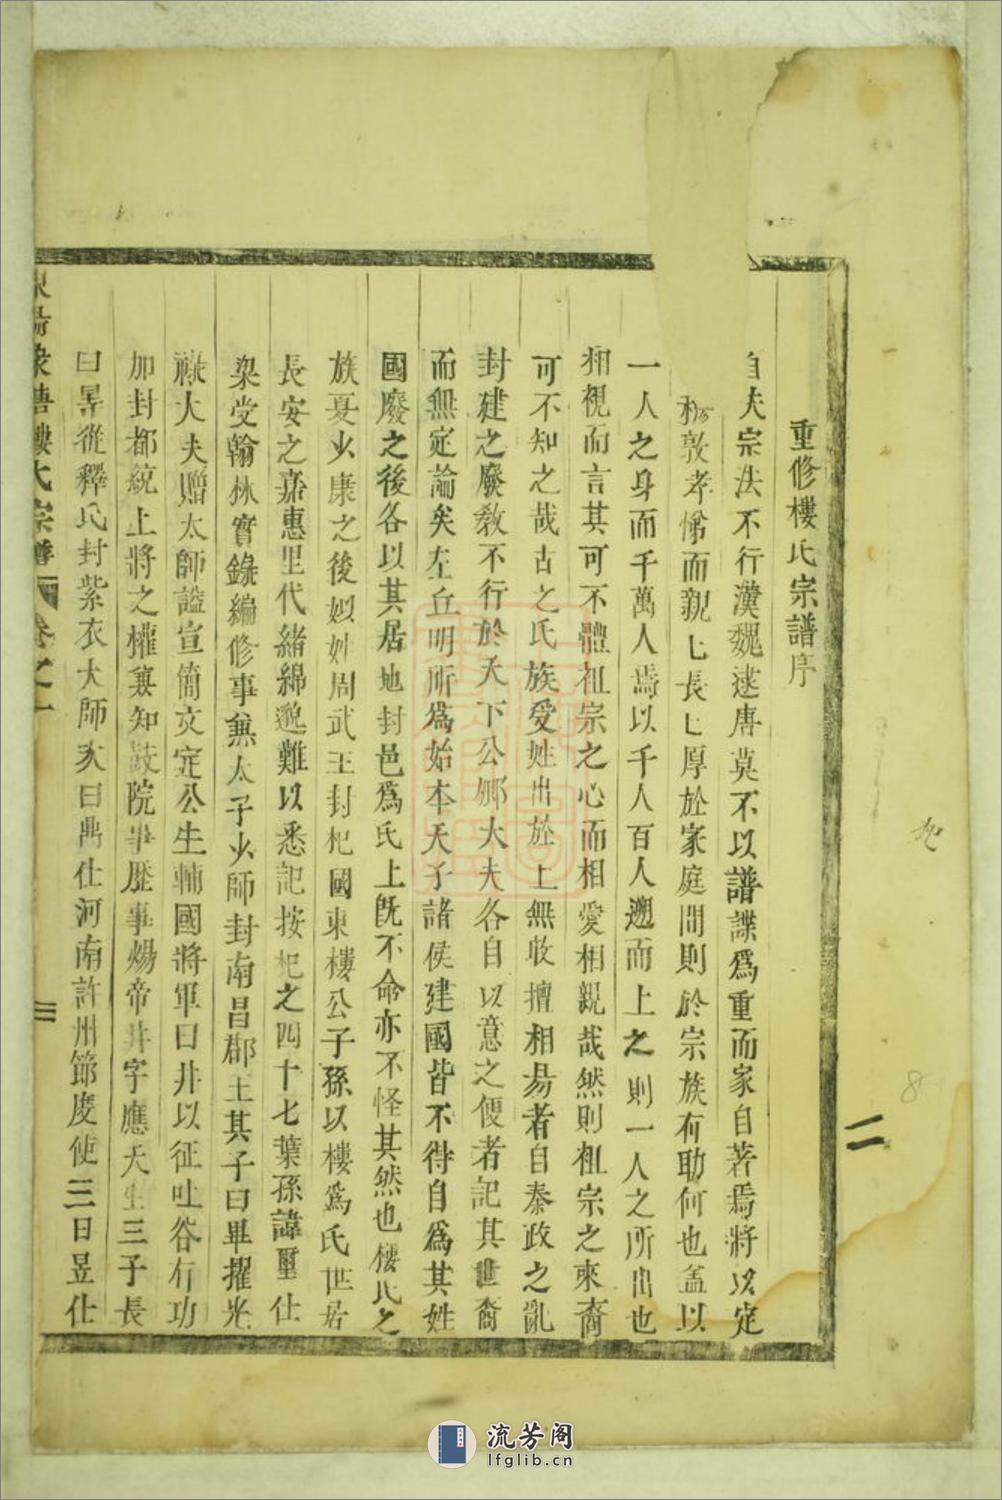 重修樓氏宗譜序
自夫宗法不行漢魏逮唐莫不以譜諜爲重而家自著焉將以定
敦孝悌而親匕長匕厚於家庭間則於宗族有助何也盖以
一人之身而千萬人焉以千人百人遡而上之則一人之所出也
相視而言其可不體祖宗之心而相愛相親哉然則祖宗之來裔
可不知之哉古之氏族受姓出於上無收擅相易者自秦政之亂
封建之廢教不行於天下公卿大夫各自以意之便者記其世裔
而無定論矣左丘明所爲始本天子諸侯建國皆不待自爲其姓
國廢之後各以其居地封邑爲氏上旣不命亦不怪其然也樓氏之
族夏少康之後姒姓周武王封杞國東樓公子孫以樓爲氏世居
長安之嘉惠里代緒綿邈難以悉記按杞之四十七葉孫諱壐仕
梁受翰林實錄編修事無太子少師封南昌郡王其子曰畢擢光
祿大夫贈太師謚宣簡文定公生輔國將軍曰井以征吐谷有功
加封都統上將之權兼知鼓院事歷事煬帝井字應天生三子長
曰昪從釋氏封紫衣大師次曰鼎仕河南許州節度使三曰昱仕
東陽象塘樓氏宗譜 卷之一
三
二
8
流芳阁
lfglib.cn